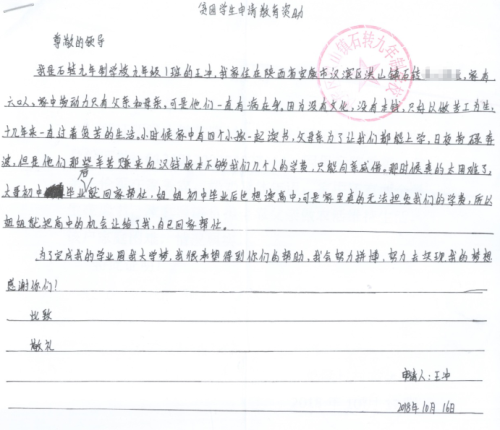 贫困学生申请教育资助
尊敬的领导
我是石转九年制学校九年级1班的王冲,我家住在陕西省安康市汉滨区洪山镇石转
六口人,家中劳动力只有父亲和母亲,可是他们一直有病在身。因为没有文化,没有本钱,只好以做苦工为生,
十几年来一直过着艰苦的生活。小时候家中有四个小孩一起读书,父母亲为了让我们都能上学,日夜拚碌奔
波,但是他们那些辛苦赚来血汗钱根本不够我们几个人的学费,只能向亲戚借,那时候真的太困难了,
大哥初中毕业后就回家帮忙,姐姐初中毕业后也想读高中,可是家里真的无法担负我们的学费,所以
姐姐就把高中的机会让给了我,自己回家帮忙。
为了完成我的学业圆我大学梦,我很希望得到你们的帮助,我会努力拼搏,努力去实现我的梦想
感谢你们!
此致
敬礼
申请人:王冲
2018年10月16日